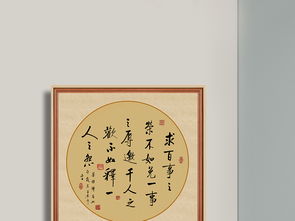 求百事之
榮不如免一事
之辱邀千人之
歡不如釋一
人之怨